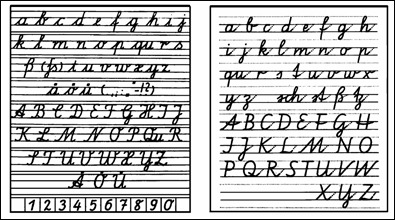 a b c d e f g h i j
k l m n o p qu r s
ß (ſs) t u v w x y z
ä ö ü (.,:;"-!?)
A B C D E F G H I J
K L M N O P Qu R
S T U V W X Y Z
Ä Ö Ü
1 2 3 4 5 6 7 8 9 0
a b c d e f g h
i j k l m n o p
qu r s t u v w x
y z sch st ß tz
A B C D E F G H
I J K L M N O
P Q R S T U V W
X Y Z